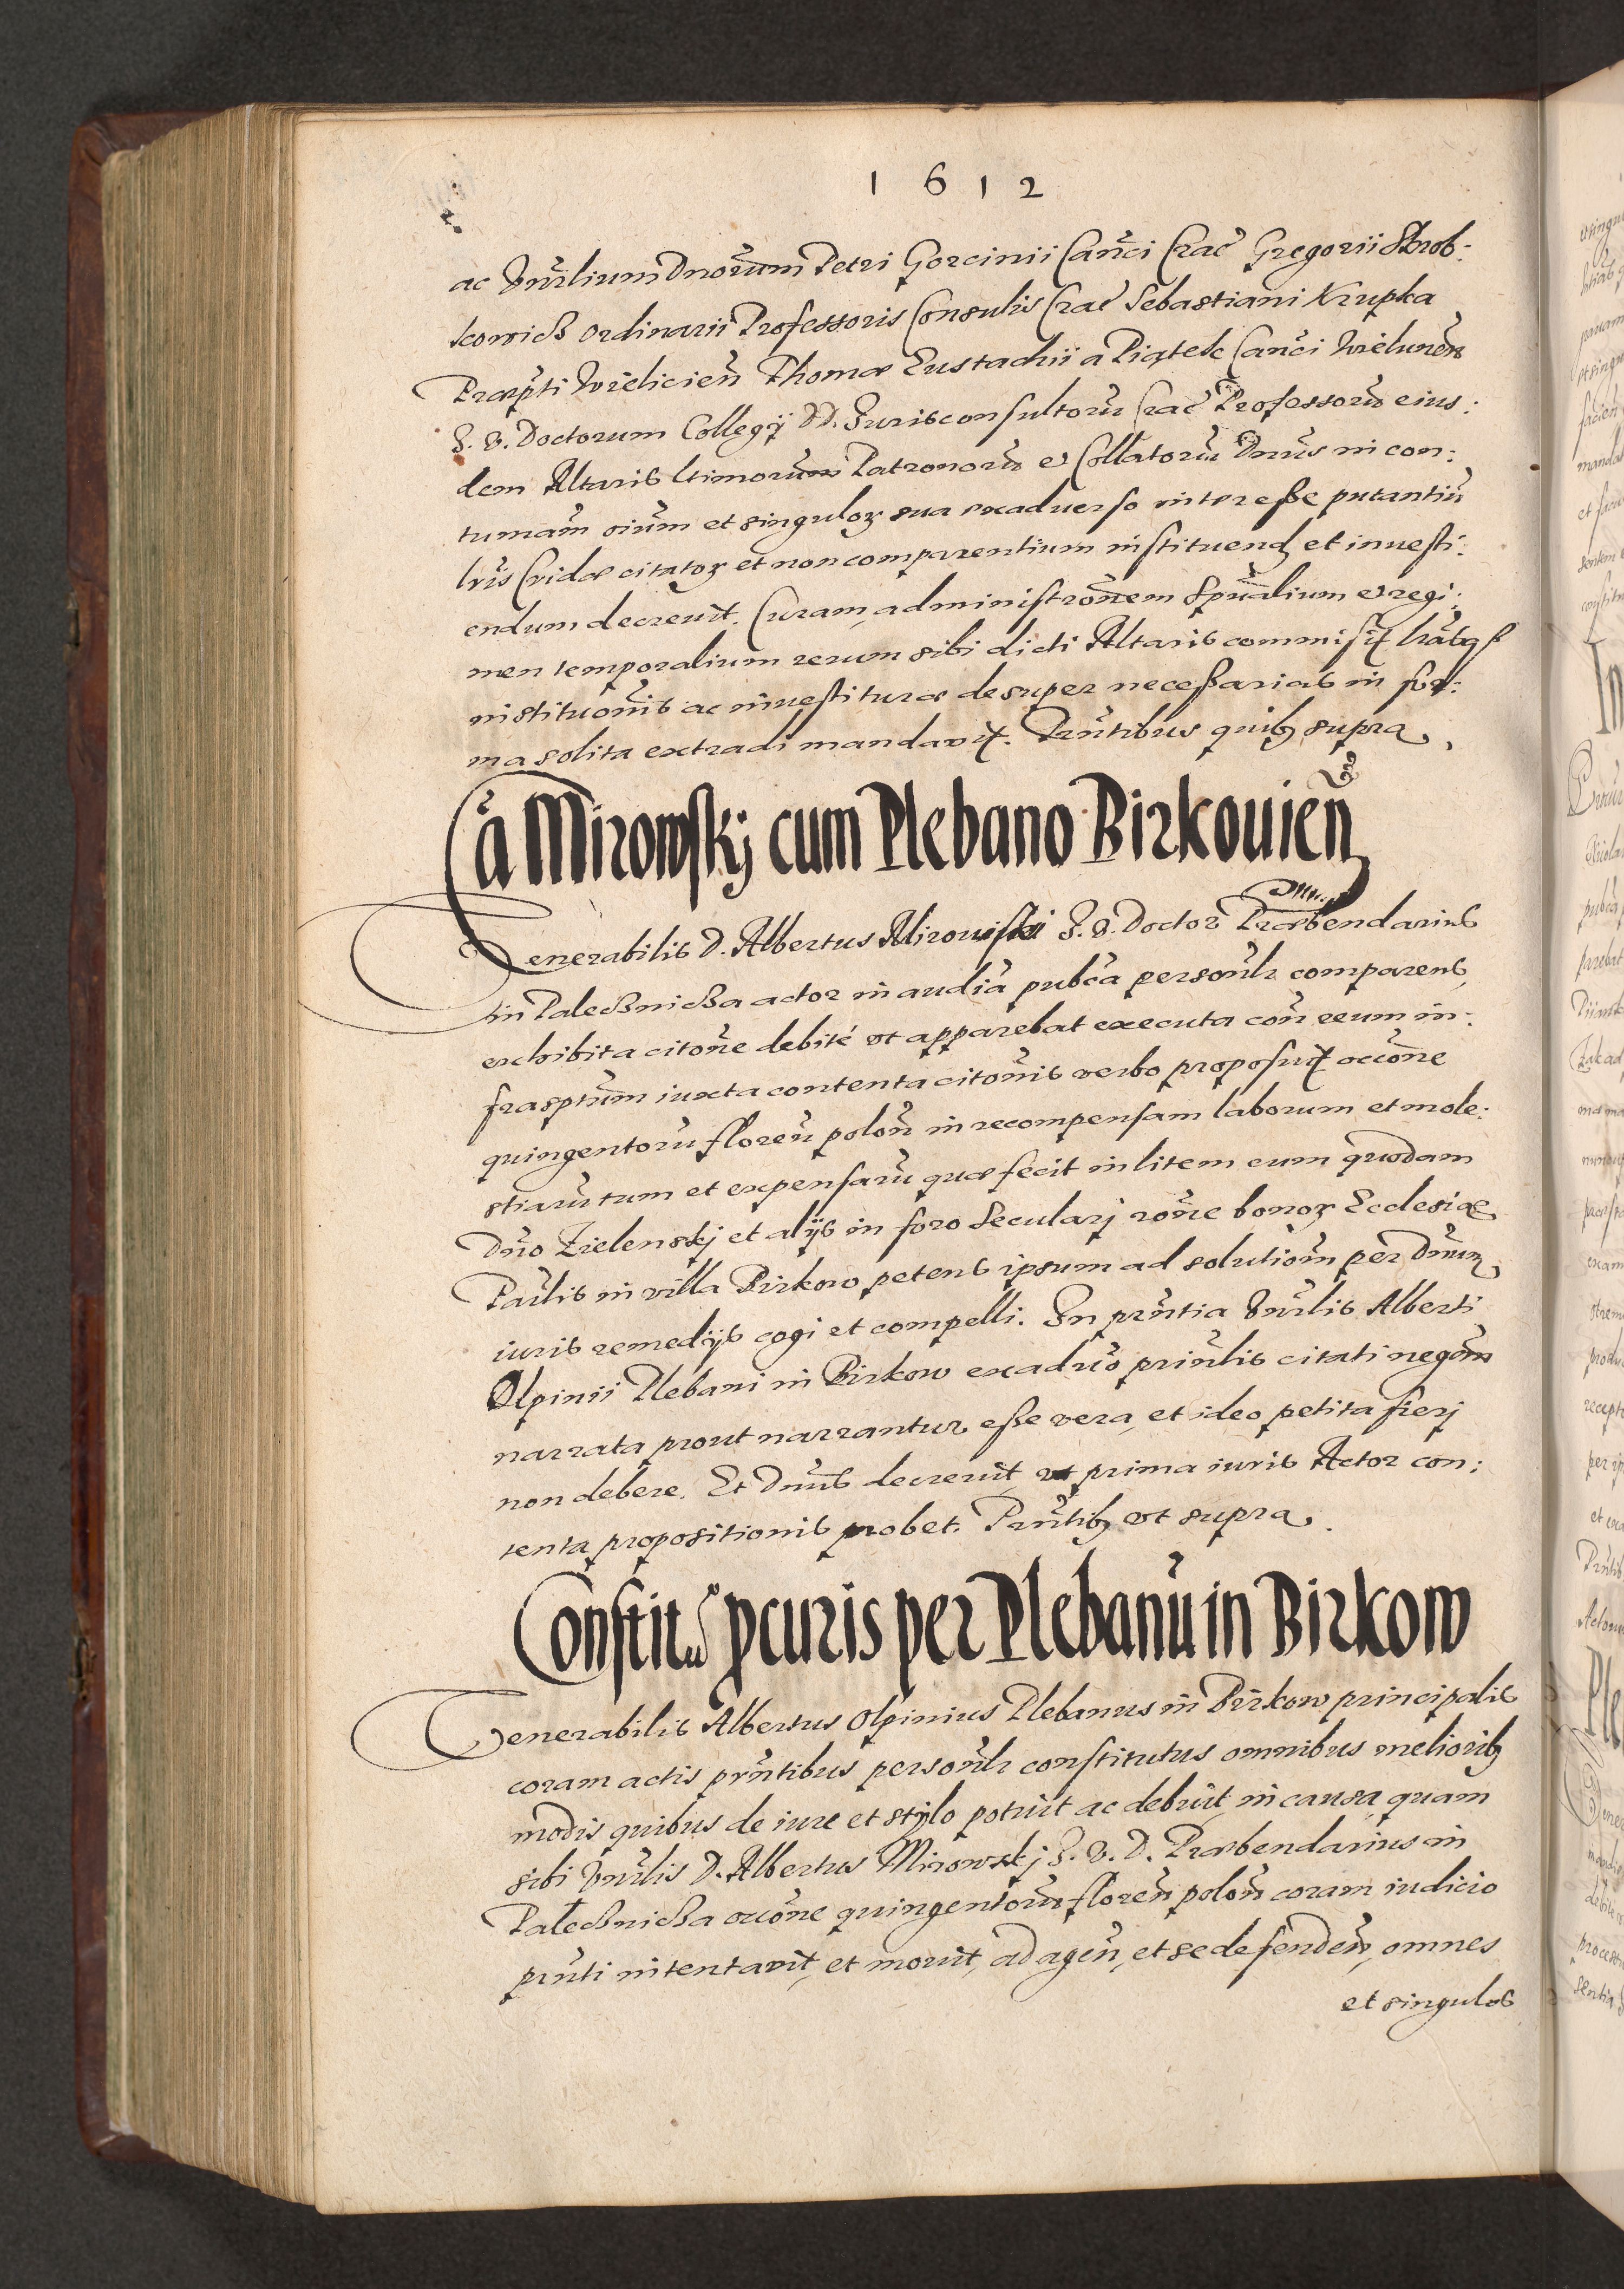 1612
ac Vnrlium Dnorum Petri Gorcinii Canci Crac Gregorii Skrob:
kowicz ordinarii Professoris Consulis Crac Sebastiani Krupka
Præpti Wielicien Thomæ Eustachii a Piątek Canci Wielunen
I. V. Doctorum Collegij DD. Jurisconsultoru Crac Professoru eius:
dem Altaris ltimorum Patronoru et Collatoru Dnus in con:
tumam oium et singuloꝝ sua exaduerso interesse putantiu
lris Cridæ citatoꝝ et non comparentium instituend et inuesti:
endum decreuit. Curam, administronem Spualium et regi:
men temporalium rerum sibi dicti Altaris commisit, lrasqꝫ
institutionis ac inuestituræ desuper necessarias in for:
ma solita extradi mandavit. Pntibus quibꝫ supra,
Ca Mirowskij cum Plebano Birkouien
Venerabilis D. Albertus Mirowski I. V. Doctor Præbendarius
in Paleczniczka actor in audia pubca personlr comparens,
exhibita citone debité vt apparebat executa con eeum in:
frasptum iuxta contenta citonis verbo proposuit occone
quingentoru floren polon in recompensam laborum et mole:
stiaru tum et expensaru quæ fecit in litem cum quodam
Dno Zielenskj et alijs in foro secularj rone bonoꝝ Ecclesiæ
Parlis in villa Birkow petens ipsum ad solutiom per Dnum,
iuris remedijs cogi et compelli. In prntia Vnrlis Alberti
Olpinii Plebani in Birkow exaduo prinlis citati negam
narrata prout narrantur, esse vera, et ideo petita fierj
non debere. Et Dnus decreuit vt prima iuris Actor con:
tenta propositionis probet. Pntibꝫ vt supra.
Constito pcuris per Plebanu in Birkow
Venerabilis Albertus Olpinius Plebanus in Birkow principalis
coram actis prntibus personlr constitutus omnibus melioribꝫ
modis quibus de iure et stylo potuit ac debuit, in causa quam
sibi Vnrlis D. Albertus Mirowskj I. V. D. Præbendarius in
Paleczniczka occone quingentoru floren polon coram iudicio
prnti intentavit, et mouit, ad agen, et se defenden, omnes
et singulos